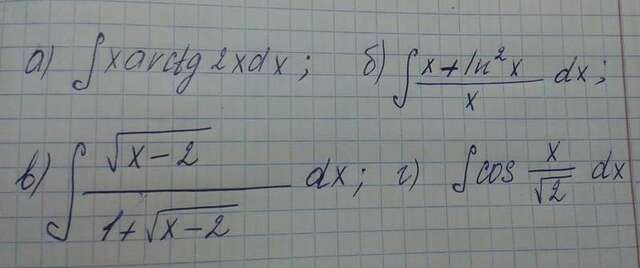 а) ∫x arctg 2x dx; б) ∫(x+ln²x)/x dx;
в) ∫√(x−2)/(1+√(x−2)) dx; г) ∫cos x/√2 dx